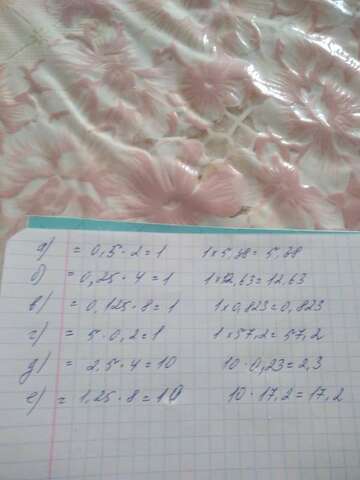 а) = 0,5 · 2 = 1 1 × 5,38 = 5,38
б) = 0,25 · 4 = 1 1 × 12,63 = 12,63
в) = 0,125 · 8 = 1 1 × 0,823 = 0,823
г) = 5 · 0,2 = 1 1 × 57,2 = 57,2
д) = 2,5 · 4 = 10 10 · 0,23 = 2,3
е) = 1,25 · 8 = 10 10 · 17,2 = 17,2